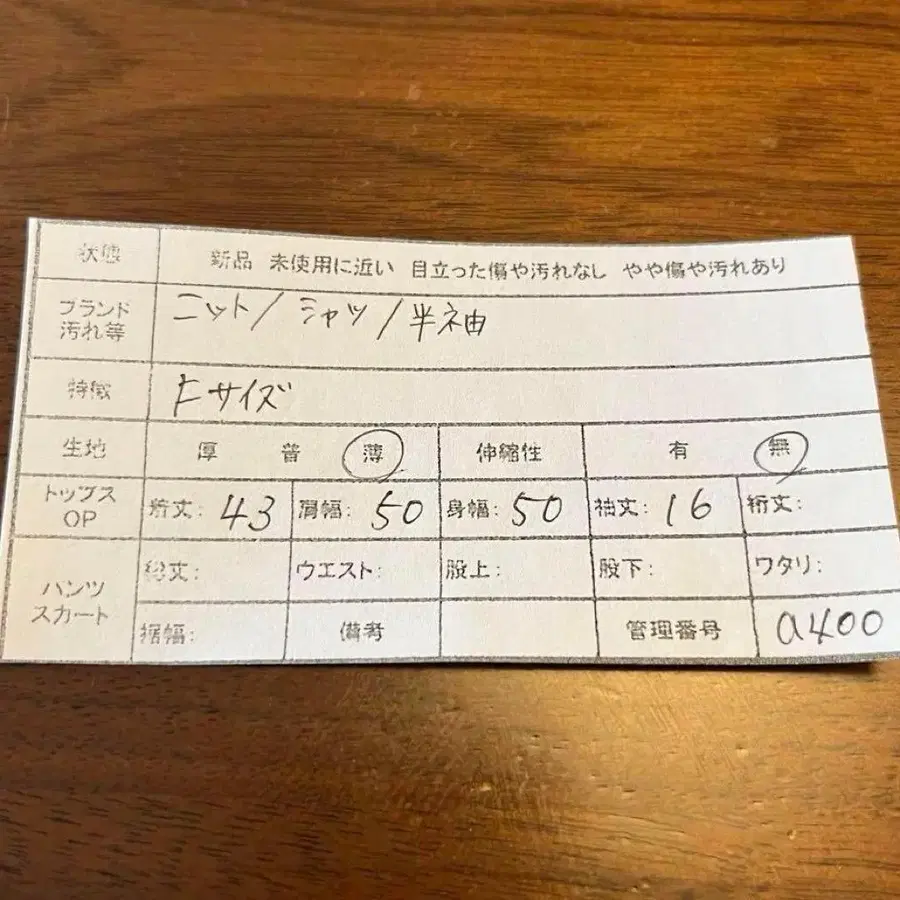 状態 新品 未使用に近い 目立った傷や汚れなし やや傷や汚れあり
ブランド
汚れ等 ニット/シャツ/半袖
特徴 Fサイズ
生地 厚 普 薄 伸縮性 有 無
トップス
OP 裄丈: 43 肩幅: 50 身幅: 50 袖丈: 16 裄丈:
パンツ
スカート 総丈: ウエスト: 股上: 股下: ワタリ:
裾幅: 備考 管理番号 a400